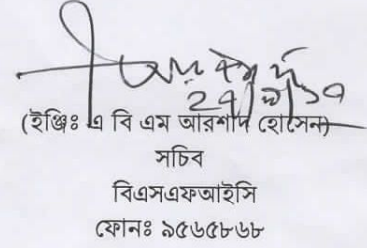 (ইঞ্জিঃ এ বি এম আরশাদ হোসেন)
সচিব
বিএসএফআইসি
ফোনঃ ৯৫৬৫৮৬৮